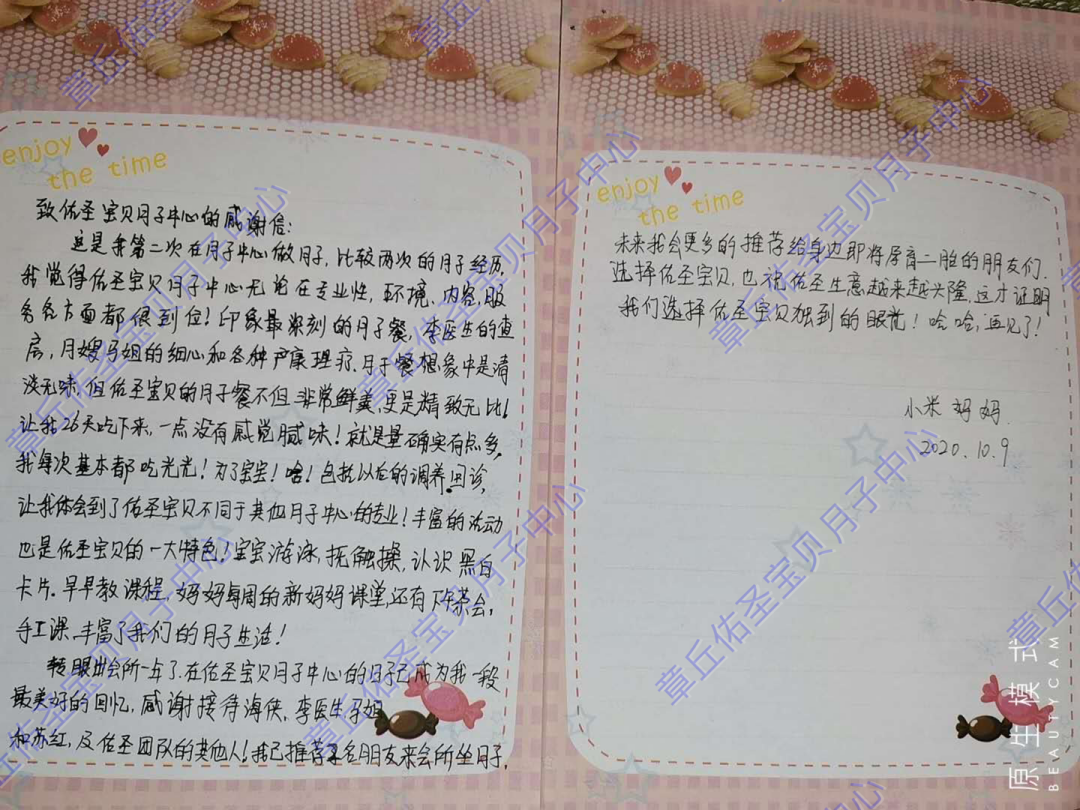 enjoy
the time
致佑圣宝贝月子中心的感谢信:
这是我第二次在月子中心做月子,比较两次的月子经历,
我觉得佑圣宝贝月子中心无论在专业性,环境,内容,服
务各方面都很到位!印象最深刻的月子餐,李医生的查
房,月嫂马姐的细心和各种产康理疗.月子餐想象中是清
淡无味,但佑圣宝贝的月子餐不但非常鲜美,更是精致无比!
让我26天吃下来,一点没有感觉腻味!就是量确实有点多,
我每次基本都吃光光!为了宝宝!哈!包括以后的调养.回诊,
让我体会到了佑圣宝贝不同于其他月子中心的专业!丰富的活动
也是佑圣宝贝的一大特色!宝宝游泳,抚触操,认识黑白
卡片.早早教课程,妈妈每周的新妈妈课堂,还有下午茶会,
手工课,丰富了我们的月子生活!
转眼出会所一年了.在佑圣宝贝月子中心的日子已成为我一段
最美好的回忆,感谢接待海侠,李医生,马姐
和苏红,及佑圣团队的其他人!我已推荐名朋友来会所坐月子,
enjoy
the time
未来我会更多的推荐给身边即将孕育二胎的朋友们.
选择佑圣宝贝,也祝佑圣生意越来越兴隆,这才证明
我们选择佑圣宝贝独到的眼光!哈哈,再见了!
小米妈妈.
2020.10.9
章丘佑圣宝贝月子中心
原生模式
BEAUTYCAM